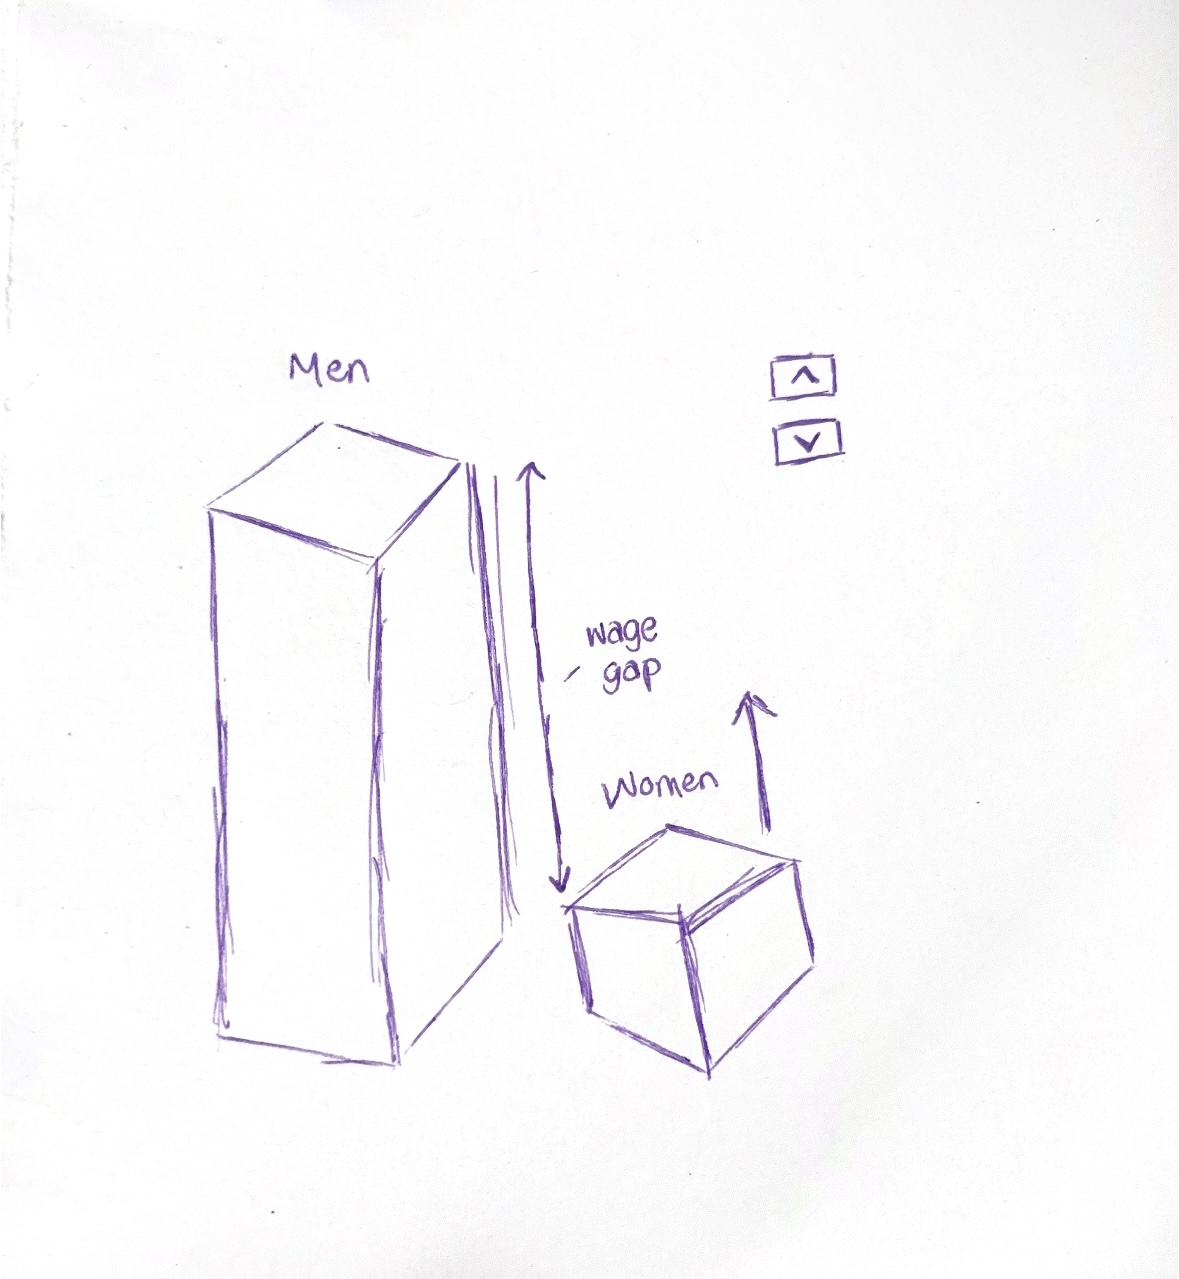 Men
wage
gap
Women